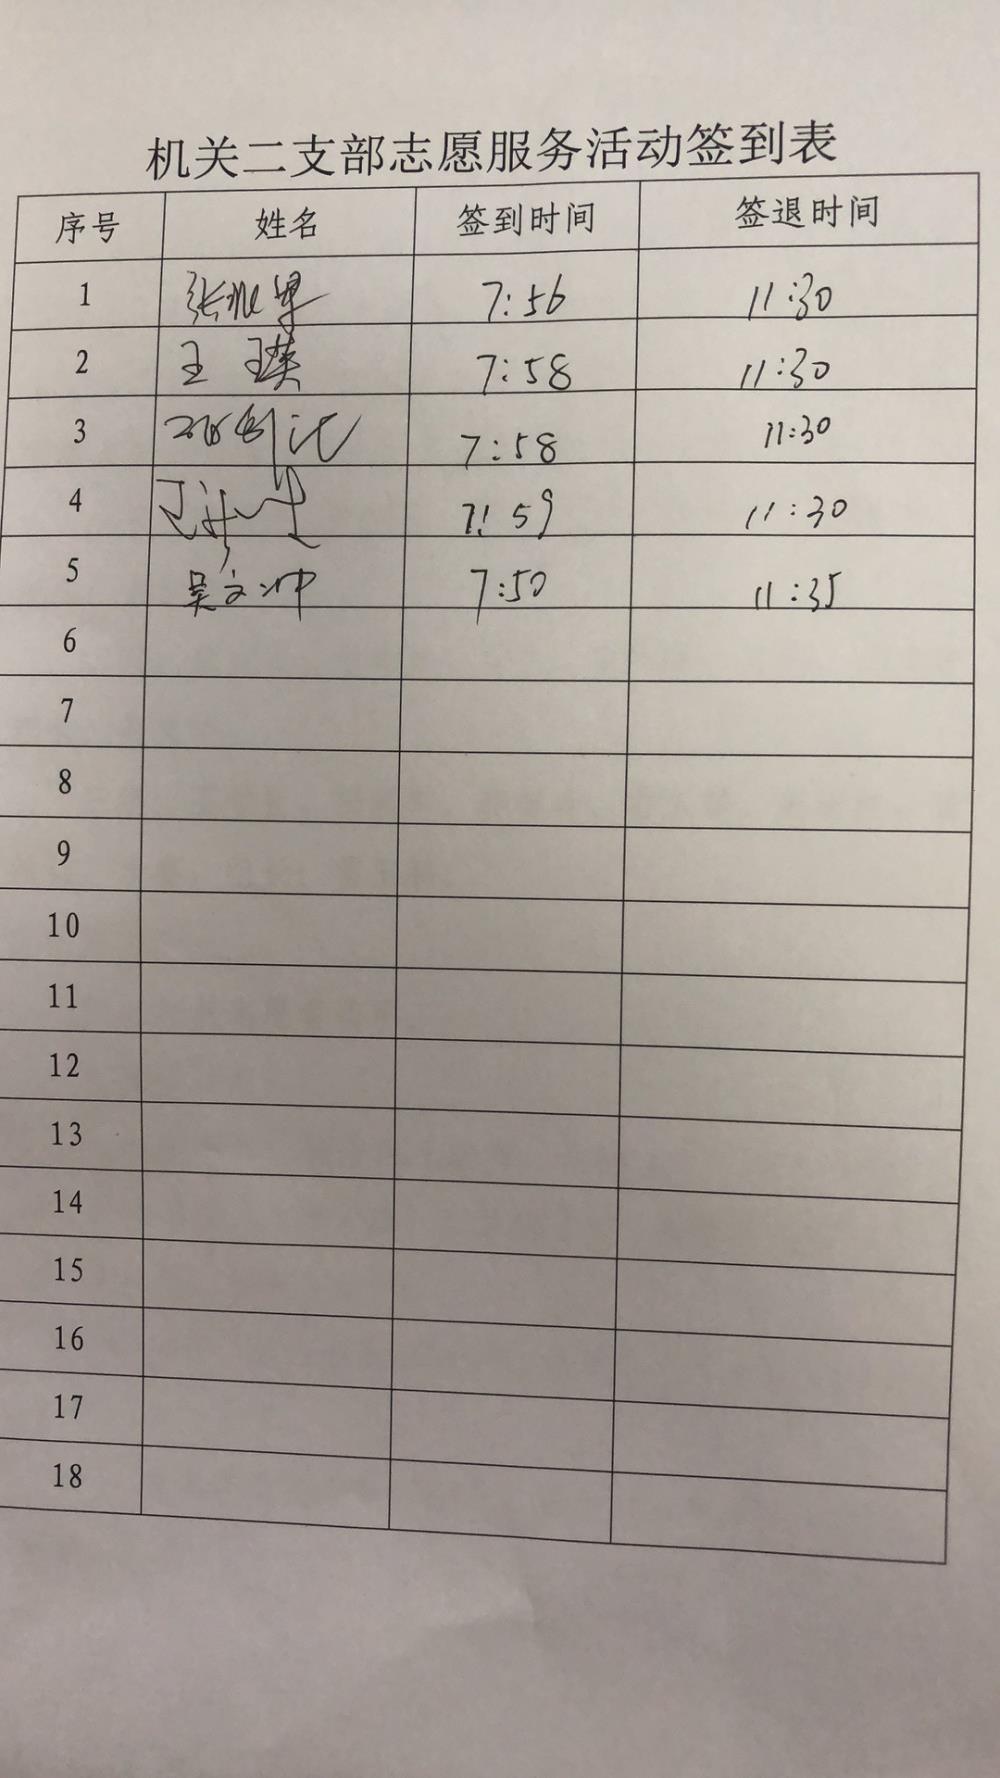 机关二支部志愿服务活动签到表
序号 姓名 签到时间 签退时间
1 张 7:56 11:30
2 王瑛 7:58 11:30
3 7:58 11:30
4 7:59 11:30
5 吴文冲 7:50 11:35
6
7
8
9
10
11
12
13
14
15
16
17
18